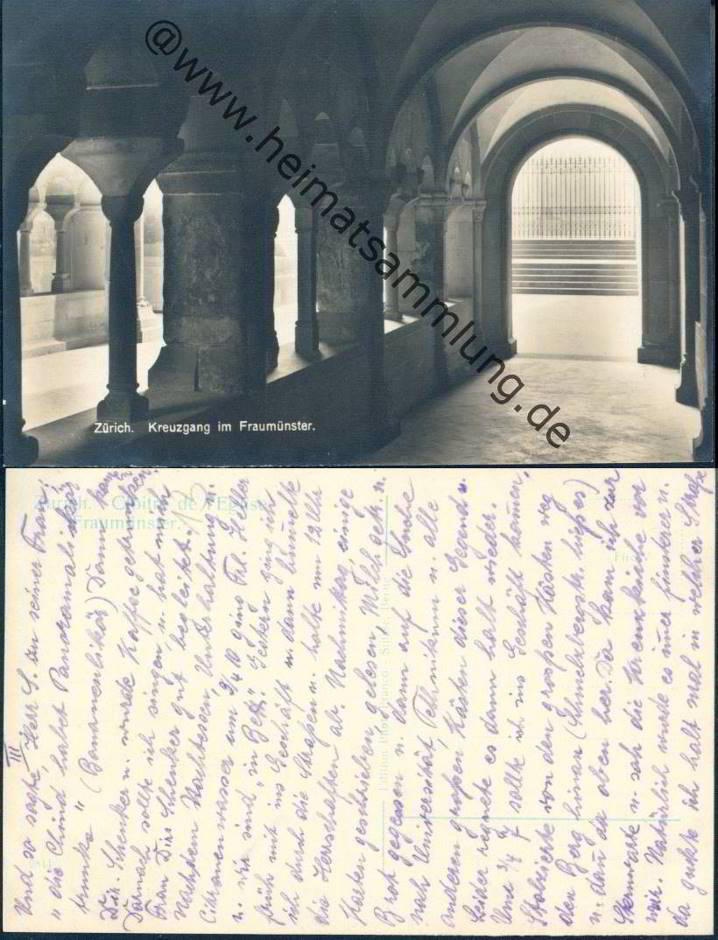 @www.heimatsammlung.de
Zürich. Kreuzgang im Fraumünster.
Zürich. Cloître de l'Eglise
Fraumünster.
III
Und so sagte Herr S. zu seiner Frau:
"die Chind habet Pandoramalikör
trunke" (Bananenlikör) Dann kam
Dir. Schenker u. wurde Kaffee getrunken.
Darnach sollte ich singen u. hat mich
Frau Dir. Schenker gut begleitet.
Nachdem Nachtessen Unterhaltung u.
Citronenwasser um 3/4 10 ging Frl. Heller
u. wir sind "in Bett." Gestern ging ich
früh mit ins Geschäft u. dann bummelte
ich durch die Straßen u. holte um 12 Uhr
die Herrschaften ab. Nachmittag einige
Karten geschrieben, gelesen, Milch getr. u.
Brot gegessen u. dann auf die Suche
nach Universität, Technikum u. alle
anderen großen Kästen dieser Gegend u.
Leider regnete es dann halt wieder.
Um 3/4 7 sollte ich ins Geschäft kommen,
von den großen Kästen weg
den Berg hinan (Schmelzbergstr. hieß es)
u. dann da oben her. Da kam ich zur
Sternwarte u. sah die Kreuzkirche vor
mir. Natürlich wurde es immer finsterer u.
da guckte ich halt mal in welcher Straße